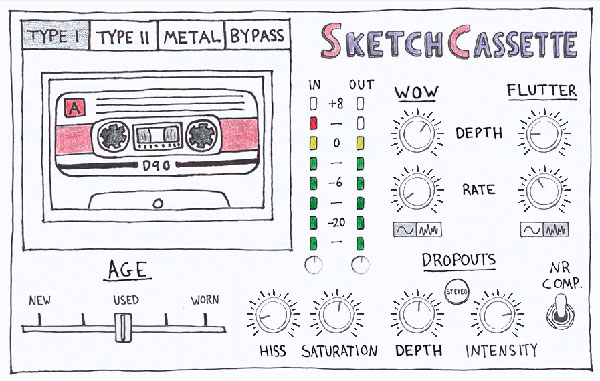 TYPE I TYPE II METAL BYPASS
SKETCHCASSETTE
IN OUT
WOW FLUTTER
A
+8
DEPTH
0
D90
-6
RATE
-20
AGE
DROPOUTS
NEW USED WORN
STEREO
NR
COMP.
HISS SATURATION DEPTH INTENSITY